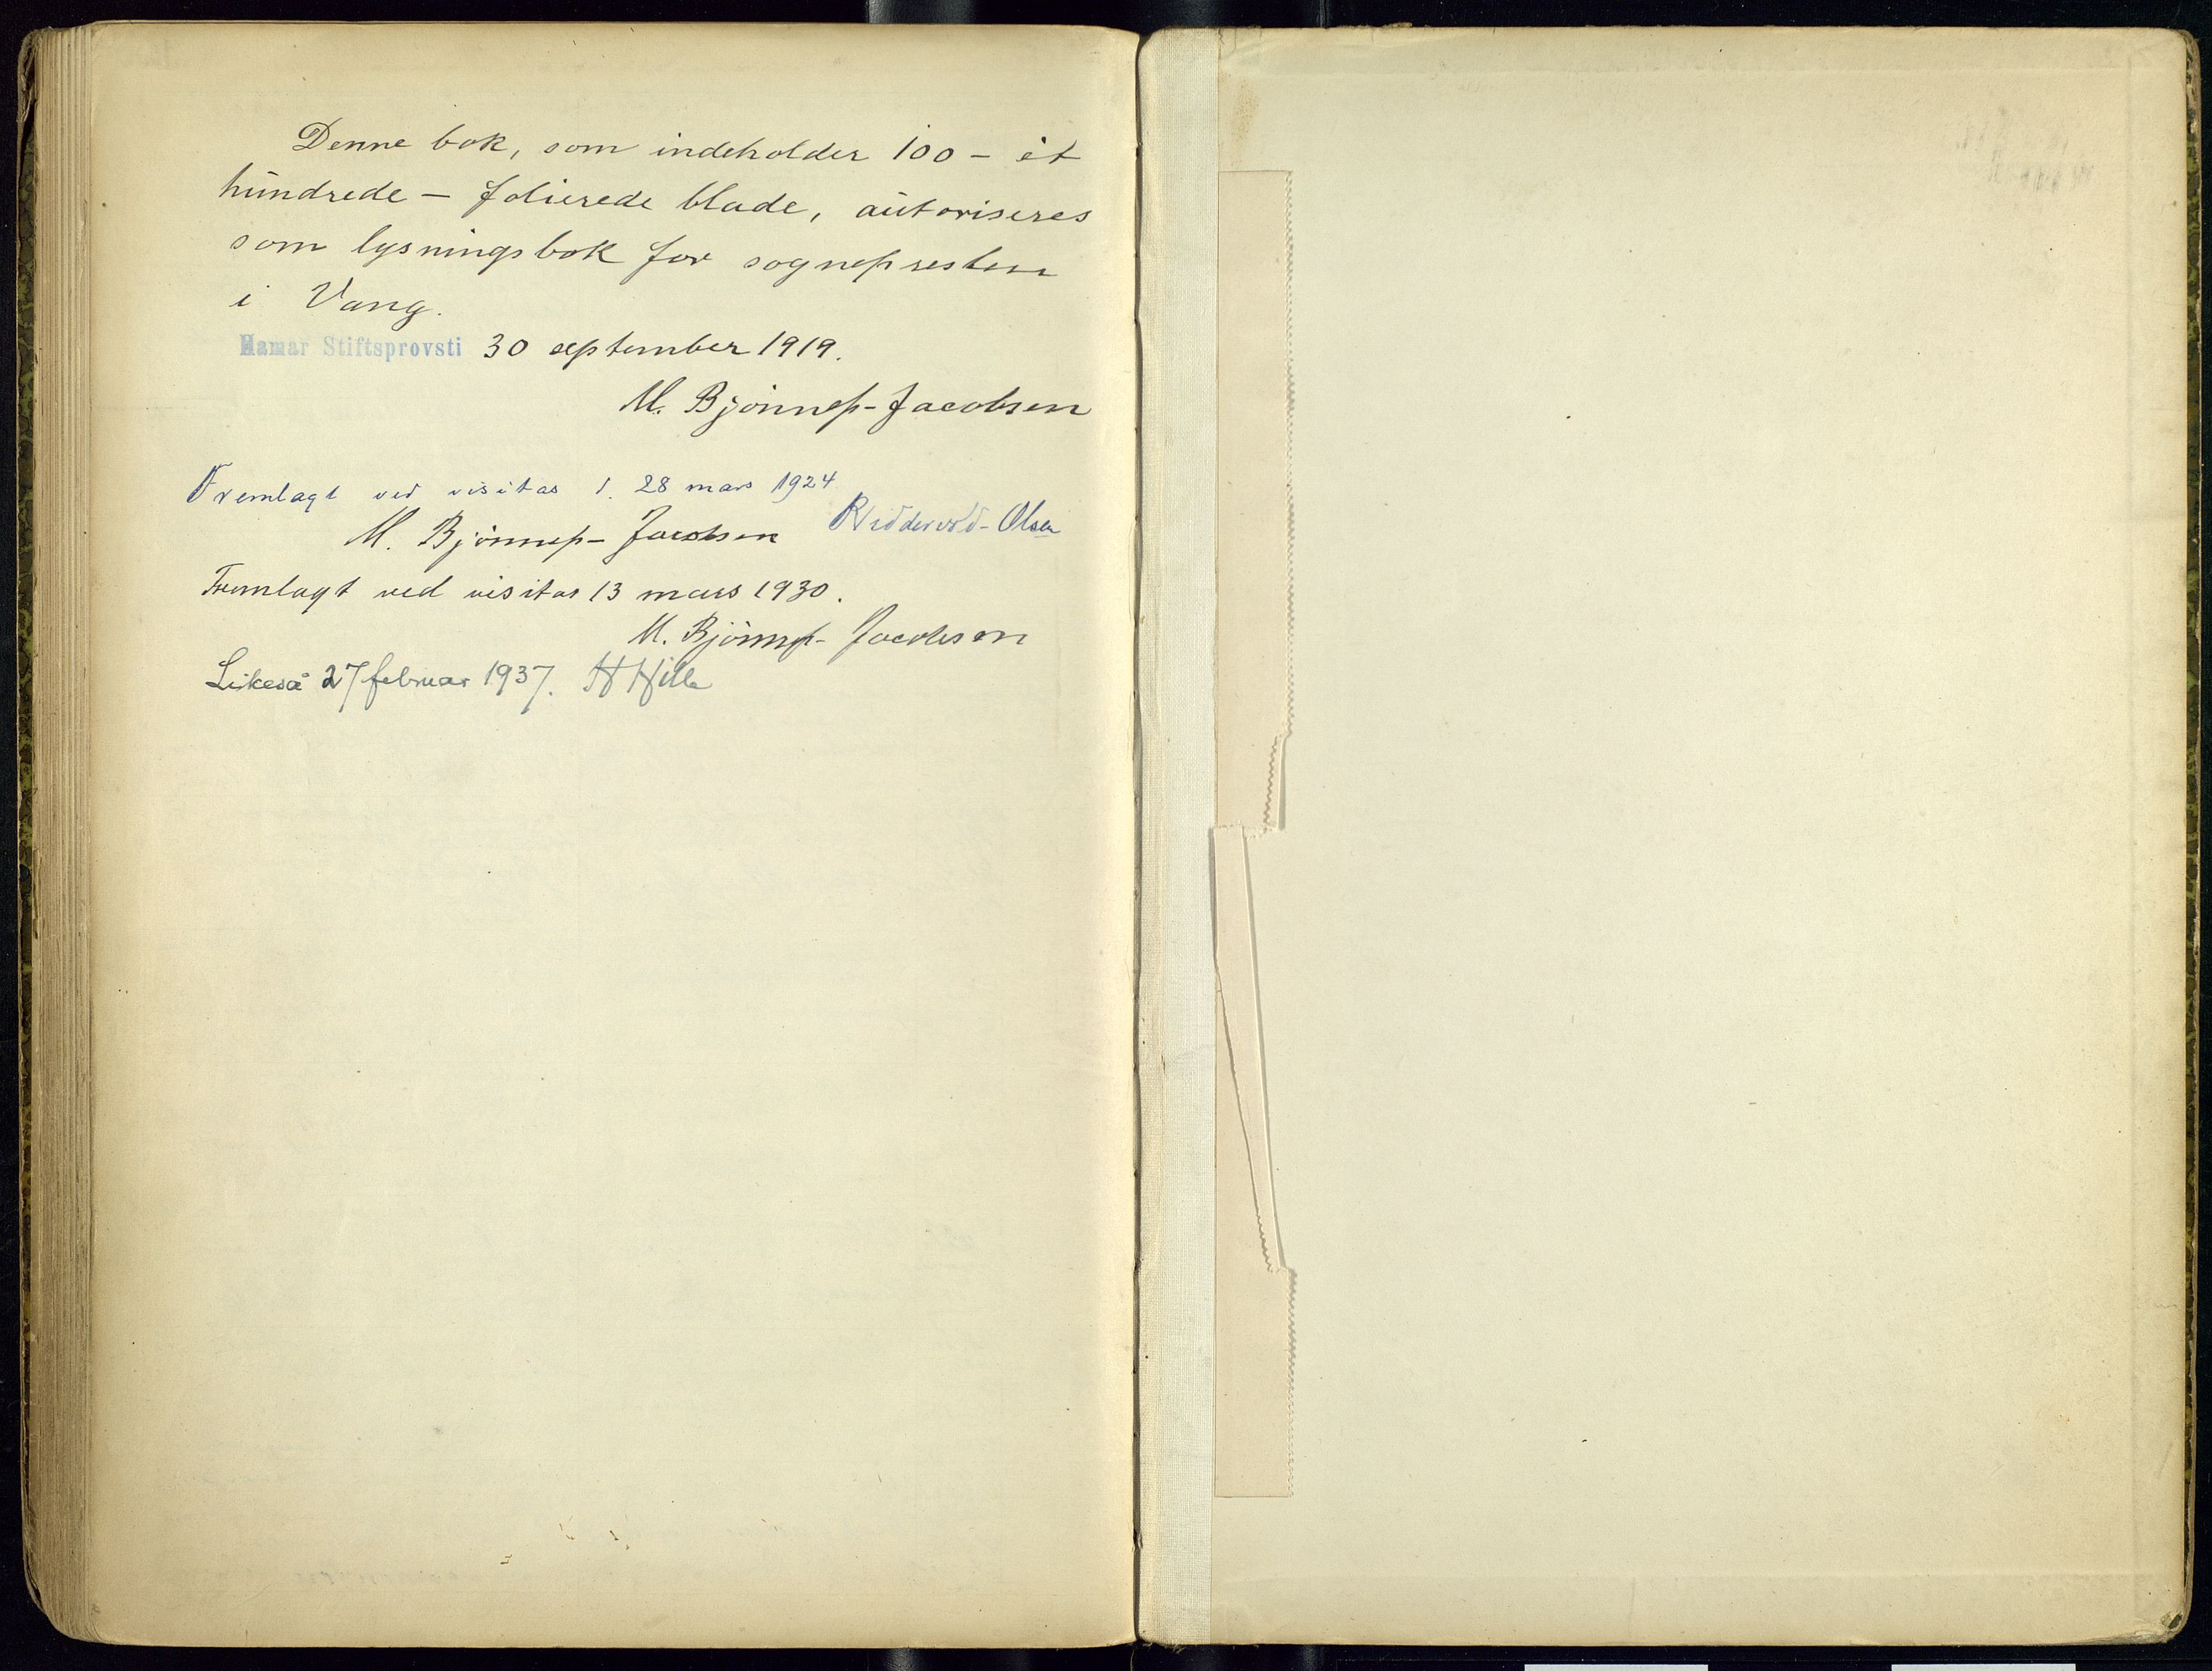 Denne bok, som indeholder 100 - et
hundrede - folierede blade, autoriseres
som lysningsbok for sognepresten
i Vang.
Hamar Stiftsprovsti 30 september 1919.
M. Bjönnes-Jacobsen
Fremlagt ved visitas 28 mars 1924
M. Bjönnes-Jacobsen Riddervold-Olsen
Fremlagt ved visitas 13 mars 1930.
M. Bjönnes-Jacobsen
Likeså 27 februar 1937. H Hille